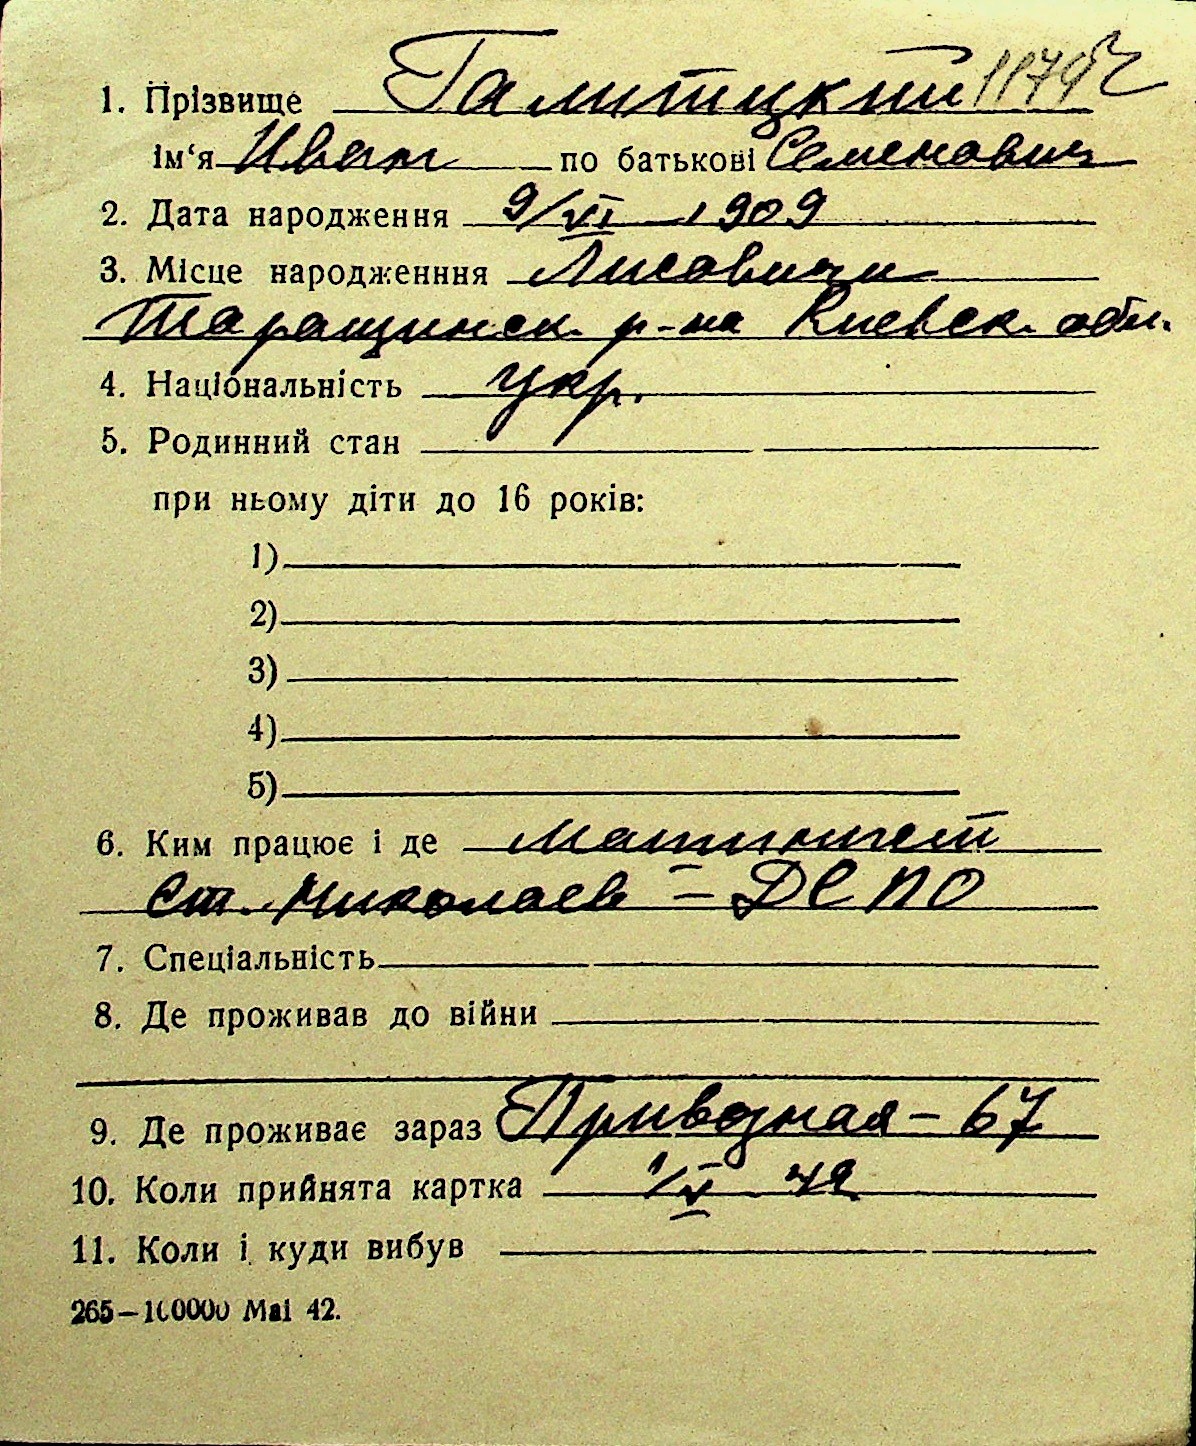 1. Прізвище Галитцкий
ім‘я Иван по батькові Семенович
2. Дата народження 9/VI 1909
3. Місце народженння Лисовичи
Таращинск. р-на Киевск. обл.
4. Національність Укр.
5. Родинний стан
при ньому діти до 16 років:
1)
2)
3)
4)
5)
6. Ким працює і де машинист
ст. Николаев - ДСПО
7. Спеціальність
8. Де проживав до війни
9. Де проживає зараз Привозная - 67
10. Коли прийнята картка 1/V 42
11. Коли і куди вибув
265–100000 Маі 42.